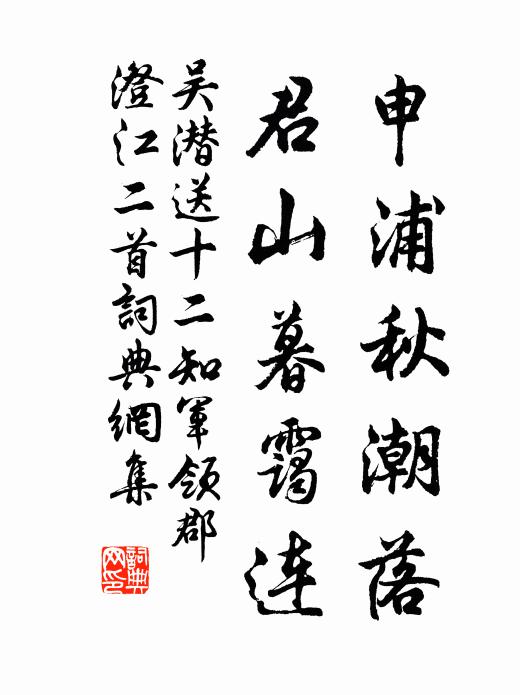 申浦秋潮落
君山暮靄连
吴潜送十二知军領郡
澄江二首詞典網集
詞典网印